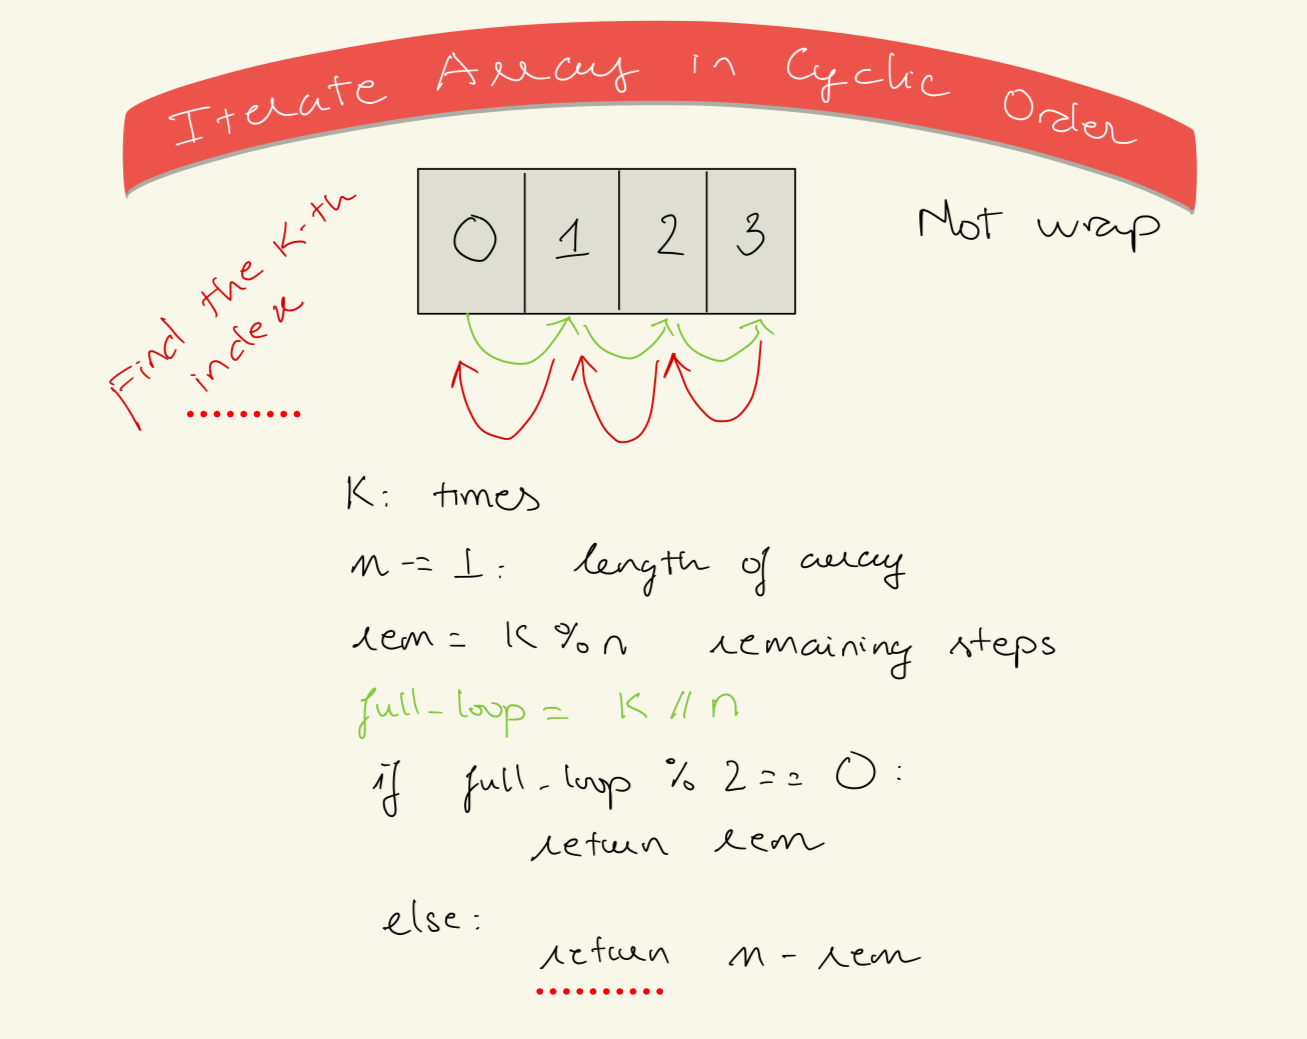 Iterate Array in Cyclic Order
Find the K-th
index
0 1 2 3
Not wrap
K: times
n -= 1: length of array
rem = K % n remaining steps
full_loop = K // n
if full_loop % 2 == 0:
return rem
else:
return n - rem